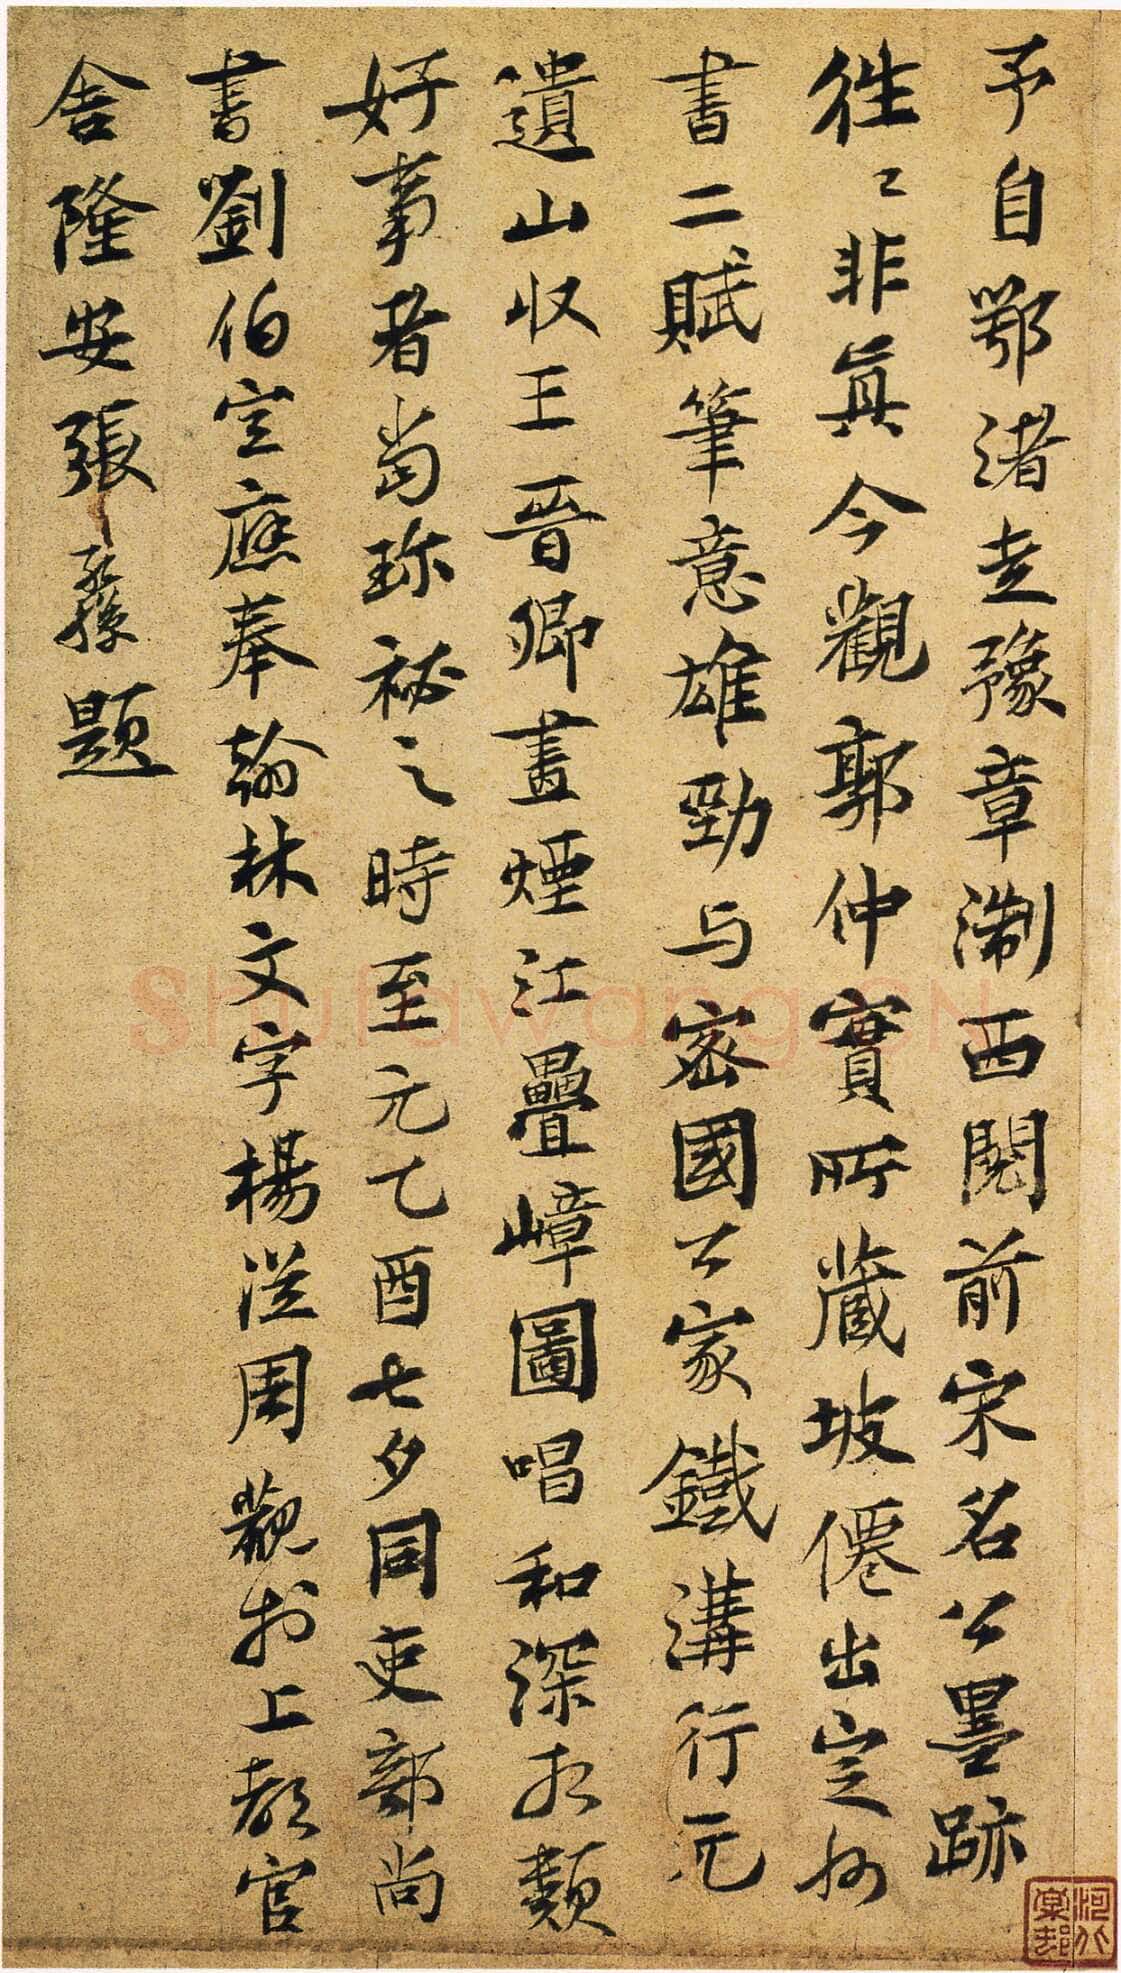 予自鄂渚走豫章淛西閱前宋名公墨跡
往〻非真今觀郭仲實所藏坡僊出定州
書二賦筆意雄勁与密國公家鐵溝行元
遺山収王晉卿畫煙江疊嶂圖唱和深相類
好事者當珎祕之時至元乙酉七夕同吏部尚
書劉伯宣應奉翰林文字楊從周觀於上都官
舍隆安張孫題
Shufawang.CN